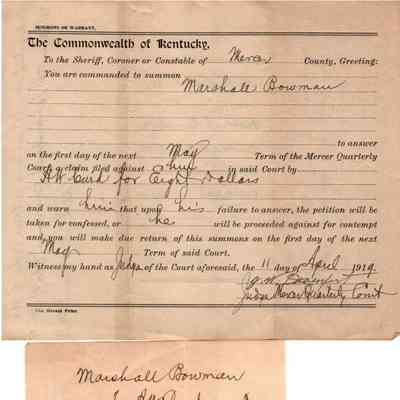 SUMMONS OR WARRANT.
The Commonwealth of Kentucky,
To the Sheriff, Coroner or Constable of Mercer County, Greeting:
You are commanded to summon
Marshall Bowman
to answer
on the first day of the next May Term of the Mercer Quarterly
Court a claim filed against him in said Court by
for Eight Dollars
and warn him that upon his failure to answer, the petition will be
taken for confessed, or he will be proceeded against for contempt
and you will make due return of this summons on the first day of the next
May Term of said Court.
Witness my hand as Judge of the Court aforesaid, the 11 day of April 1914
Judge Mercer Quarterly Court
The Herald Print
Marshall Bowman